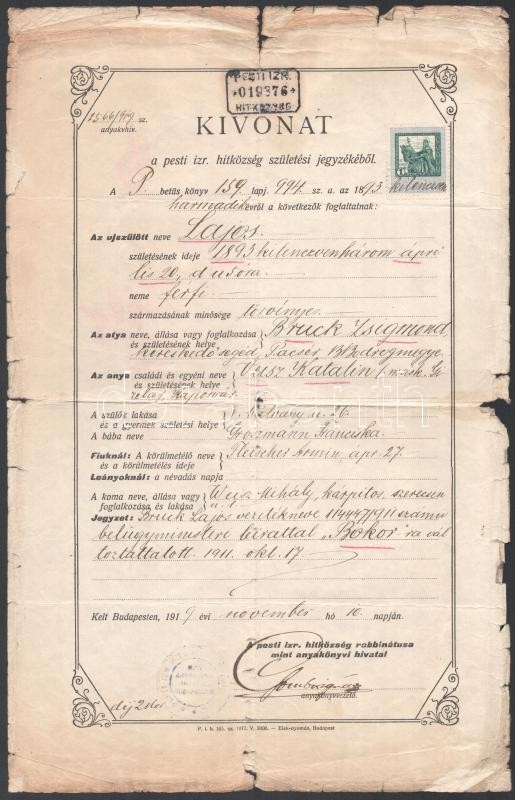 PESTI IZR.
019376
HITKÖZSÉG
1566/919. sz.
anyakvhiv.
KIVONAT
a pesti izr. hitközség születési jegyzékéből.
A P. betűs könyv 159. lap, 994. sz. a. az 1893 kilenczven
harmadik évről a következők foglaltatnak:
Az ujszülött neve Lajos.
születésének ideje 1893 kilenczvenhárom ápri
lis 20, d. u. 5 óra.
neme férfi.
származásának minősége törvényes.
Az atya neve, állása vagy foglalkozása Bruck Zsigmond
és születésének helye kereskedősegéd, Pacsér BBodrogmegye
Az anya családi és egyéni neve Veisz Katalin
és születésének helye
A szülők lakása
és a gyermek születési helye
A bába neve Groszmann Franciska.
Fiuknál: A körülmetélő neve Fleischer Armin, apr. 27.
és a körülmetélés ideje
Leányoknál: a névadás napja
A koma neve, állása vagy Weisz Mihály, kárpitos, szerecsen
foglalkozása és lakása u. 1.
Jegyzet: Bruck Lajos vezetékneve 114447/1911 számu
belügyministeri leirattal „Bokor" ra vál
toztattatott. 1911. okt. 17.
Kelt Budapesten, 1919 évi november hó 10. napján.
A pesti izr. hitközség rabbinátusa
mint anyakönyvi hivatal
anyakönyvvezető.
díj 2 kor
P. i. h. 165. sz. 1917. V. 3000. — Élet-nyomda, Budapest